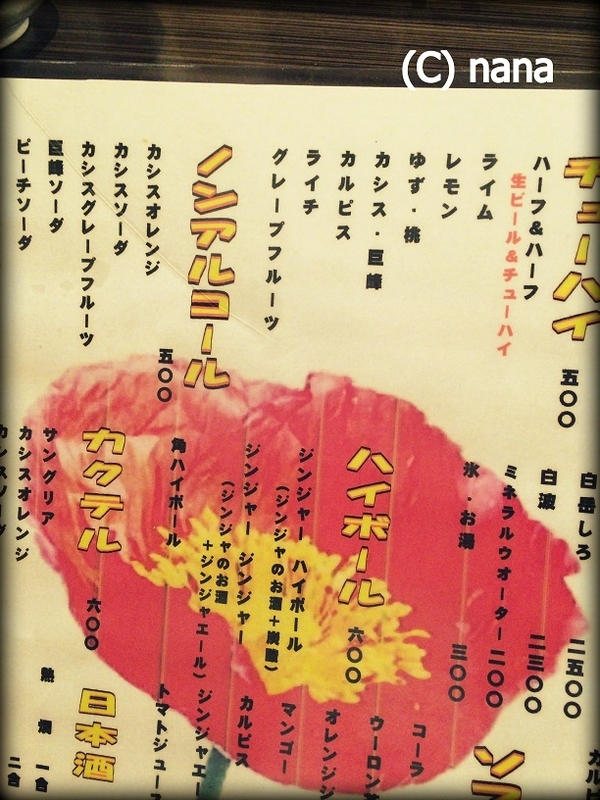 (C) nana
チューハイ
五〇〇
ハーフ&ハーフ
生ビール&チューハイ
ライム
レモン
ゆず・桃
カシス・巨峰
カルピス
ライチ
グレープフルーツ
ノンアルコール
五〇〇
カシスオレンジ
カシスソーダ
カシスグレープフルーツ
巨峰ソーダ
ピーチソーダ
白岳しろ 二五〇〇
白波 二三〇〇
ミネラルウオーター 二〇〇
氷・お湯 三〇〇
ハイボール
六〇〇
ジンジャー ハイボール
(ジンジャのお酒+炭酸)
ジンジャー ジンジャー
(ジンジャのお酒
+ジンジャエール)
角ハイボール
カクテル
六〇〇
サングリア
カシスオレンジ
カシスソーダ
ソフ
コーラ
ウーロン
オレンジジ
マンゴー
カルピス
ジンジャエー
トマトジュース
日本酒
熱燗 一合
二合